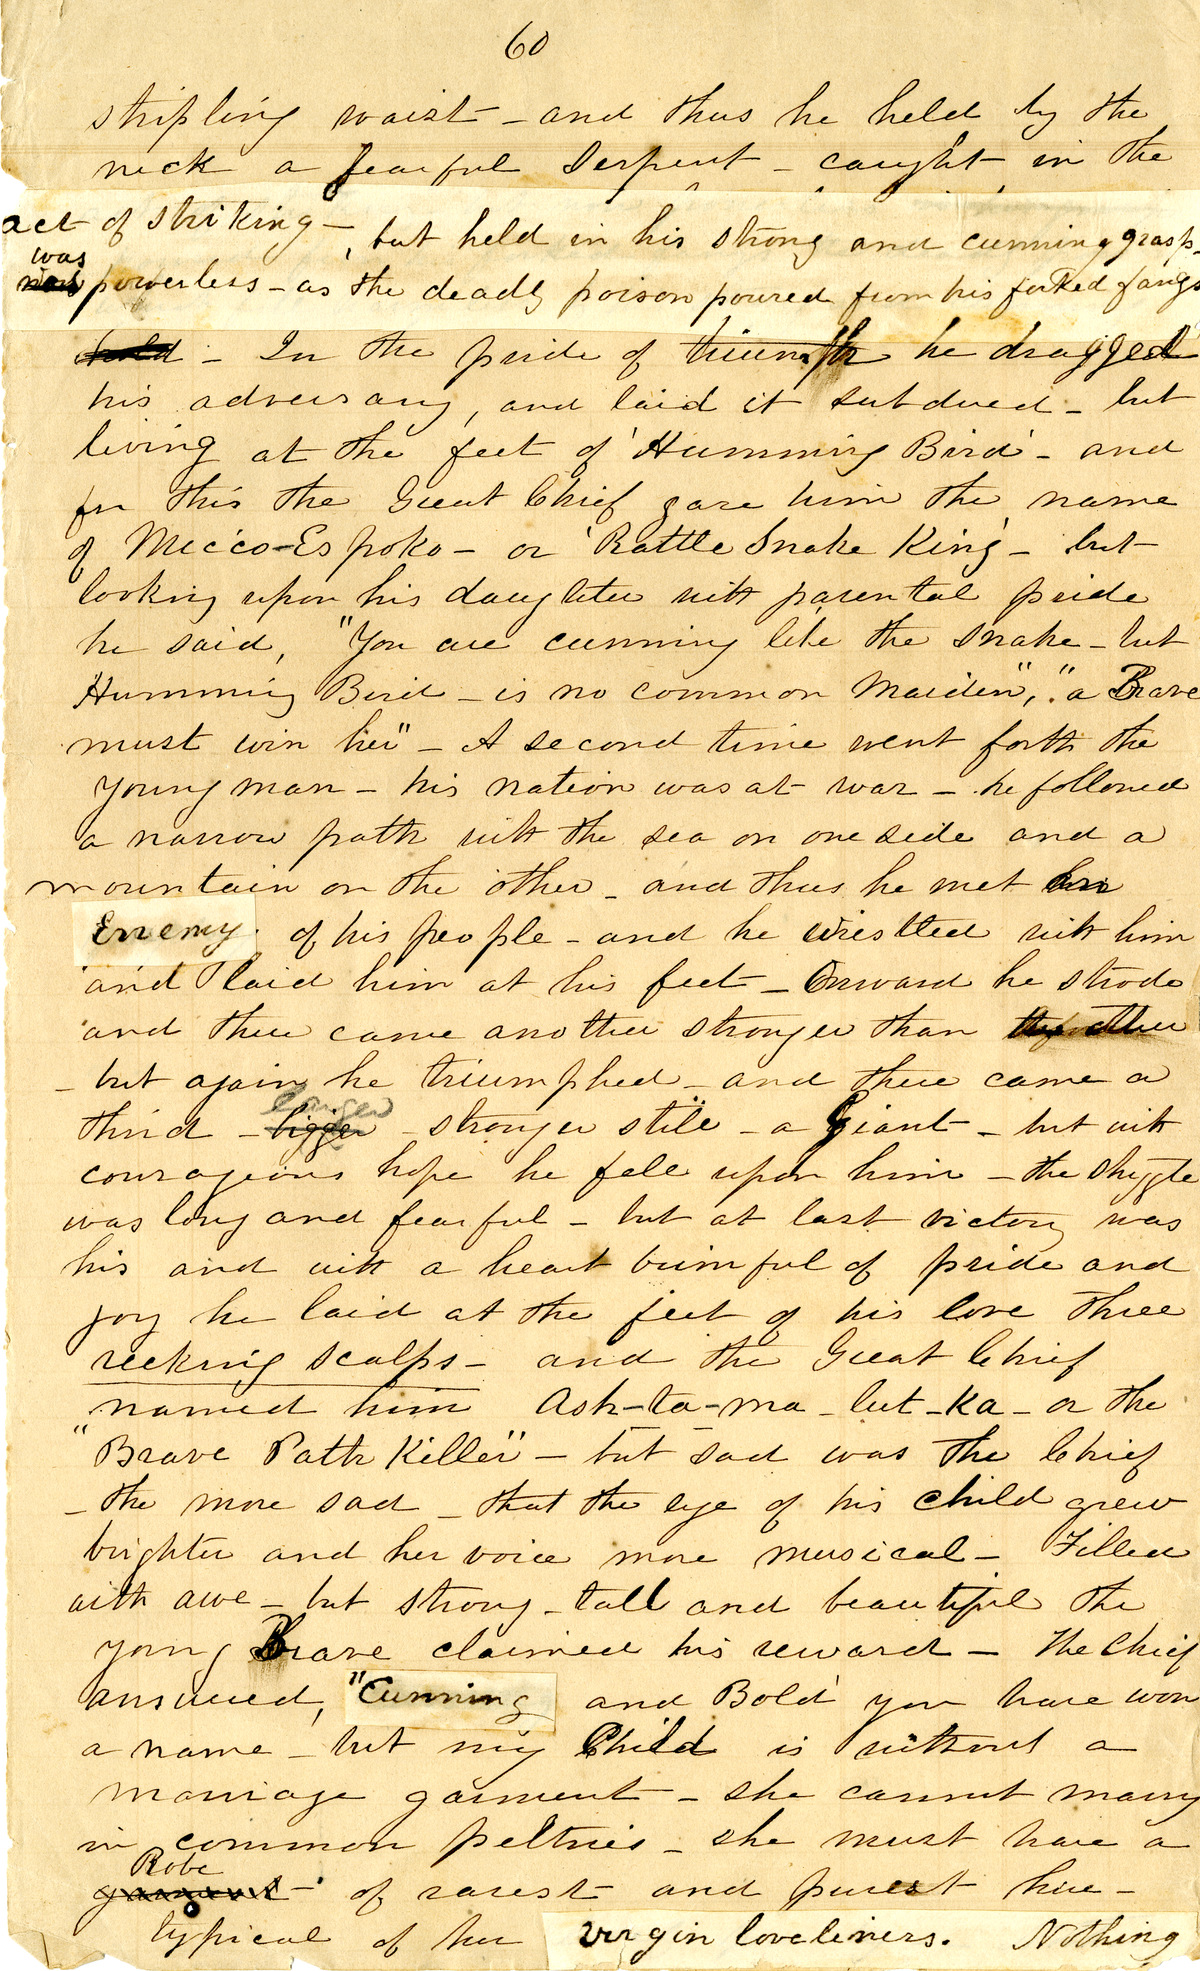 60
stripling waist - and thus he held by the
neck a fearful Serpent - caught in the
act of striking - but held in his strong and cunning grasp -
was
powerless - as the deadly poison poured from his forked fangs
hold - In the pride of triumph he dragged
his adversary, and laid it subdued - but
living at the feet of 'Humming Bird' - and
for this the Great Chief gave him the name
of Micco-Espoko - or 'Rattle Snake King' - but
looking upon his daughter with parental pride
he said, "You are cunning like the snake - but
Humming Bird - is no common Maiden", "a Brave
must win her" - A second time went forth the
young man - his nation was at war - he followed
a narrow path with the sea on one side and a
mountain on the other - and thus he met
Enemy of his people - and he wrestled with him
and laid him at his feet - Onward he strode
and there came another stronger than the other
- but again he triumphed - and there came a
larger
third - bigger - stronger still - a Giant - but with
courageous hope he fell upon him - the struggle
was long and fearful - but at last victory was
his and with a heart brimful of pride and
joy he laid at the feet of his love three
reeking scalps - and the Great Chief
named him Ash-ta-ma-lut-ka - or the
"Brave Path Killer" - but sad was the Chief
- the more sad - that the eye of his child grew
brighter and her voice more musical - Filled
with awe - but strong - tall and beautiful the
young Brave claimed his reward - the Chief
answered, "Cunning and Bold you have won
a name - but my Child is without a
marriage garment - she cannot marry
in common peltries - she must have a
Robe
garment of rarest and purest hue -
typical of her virgin loveliness. Nothing